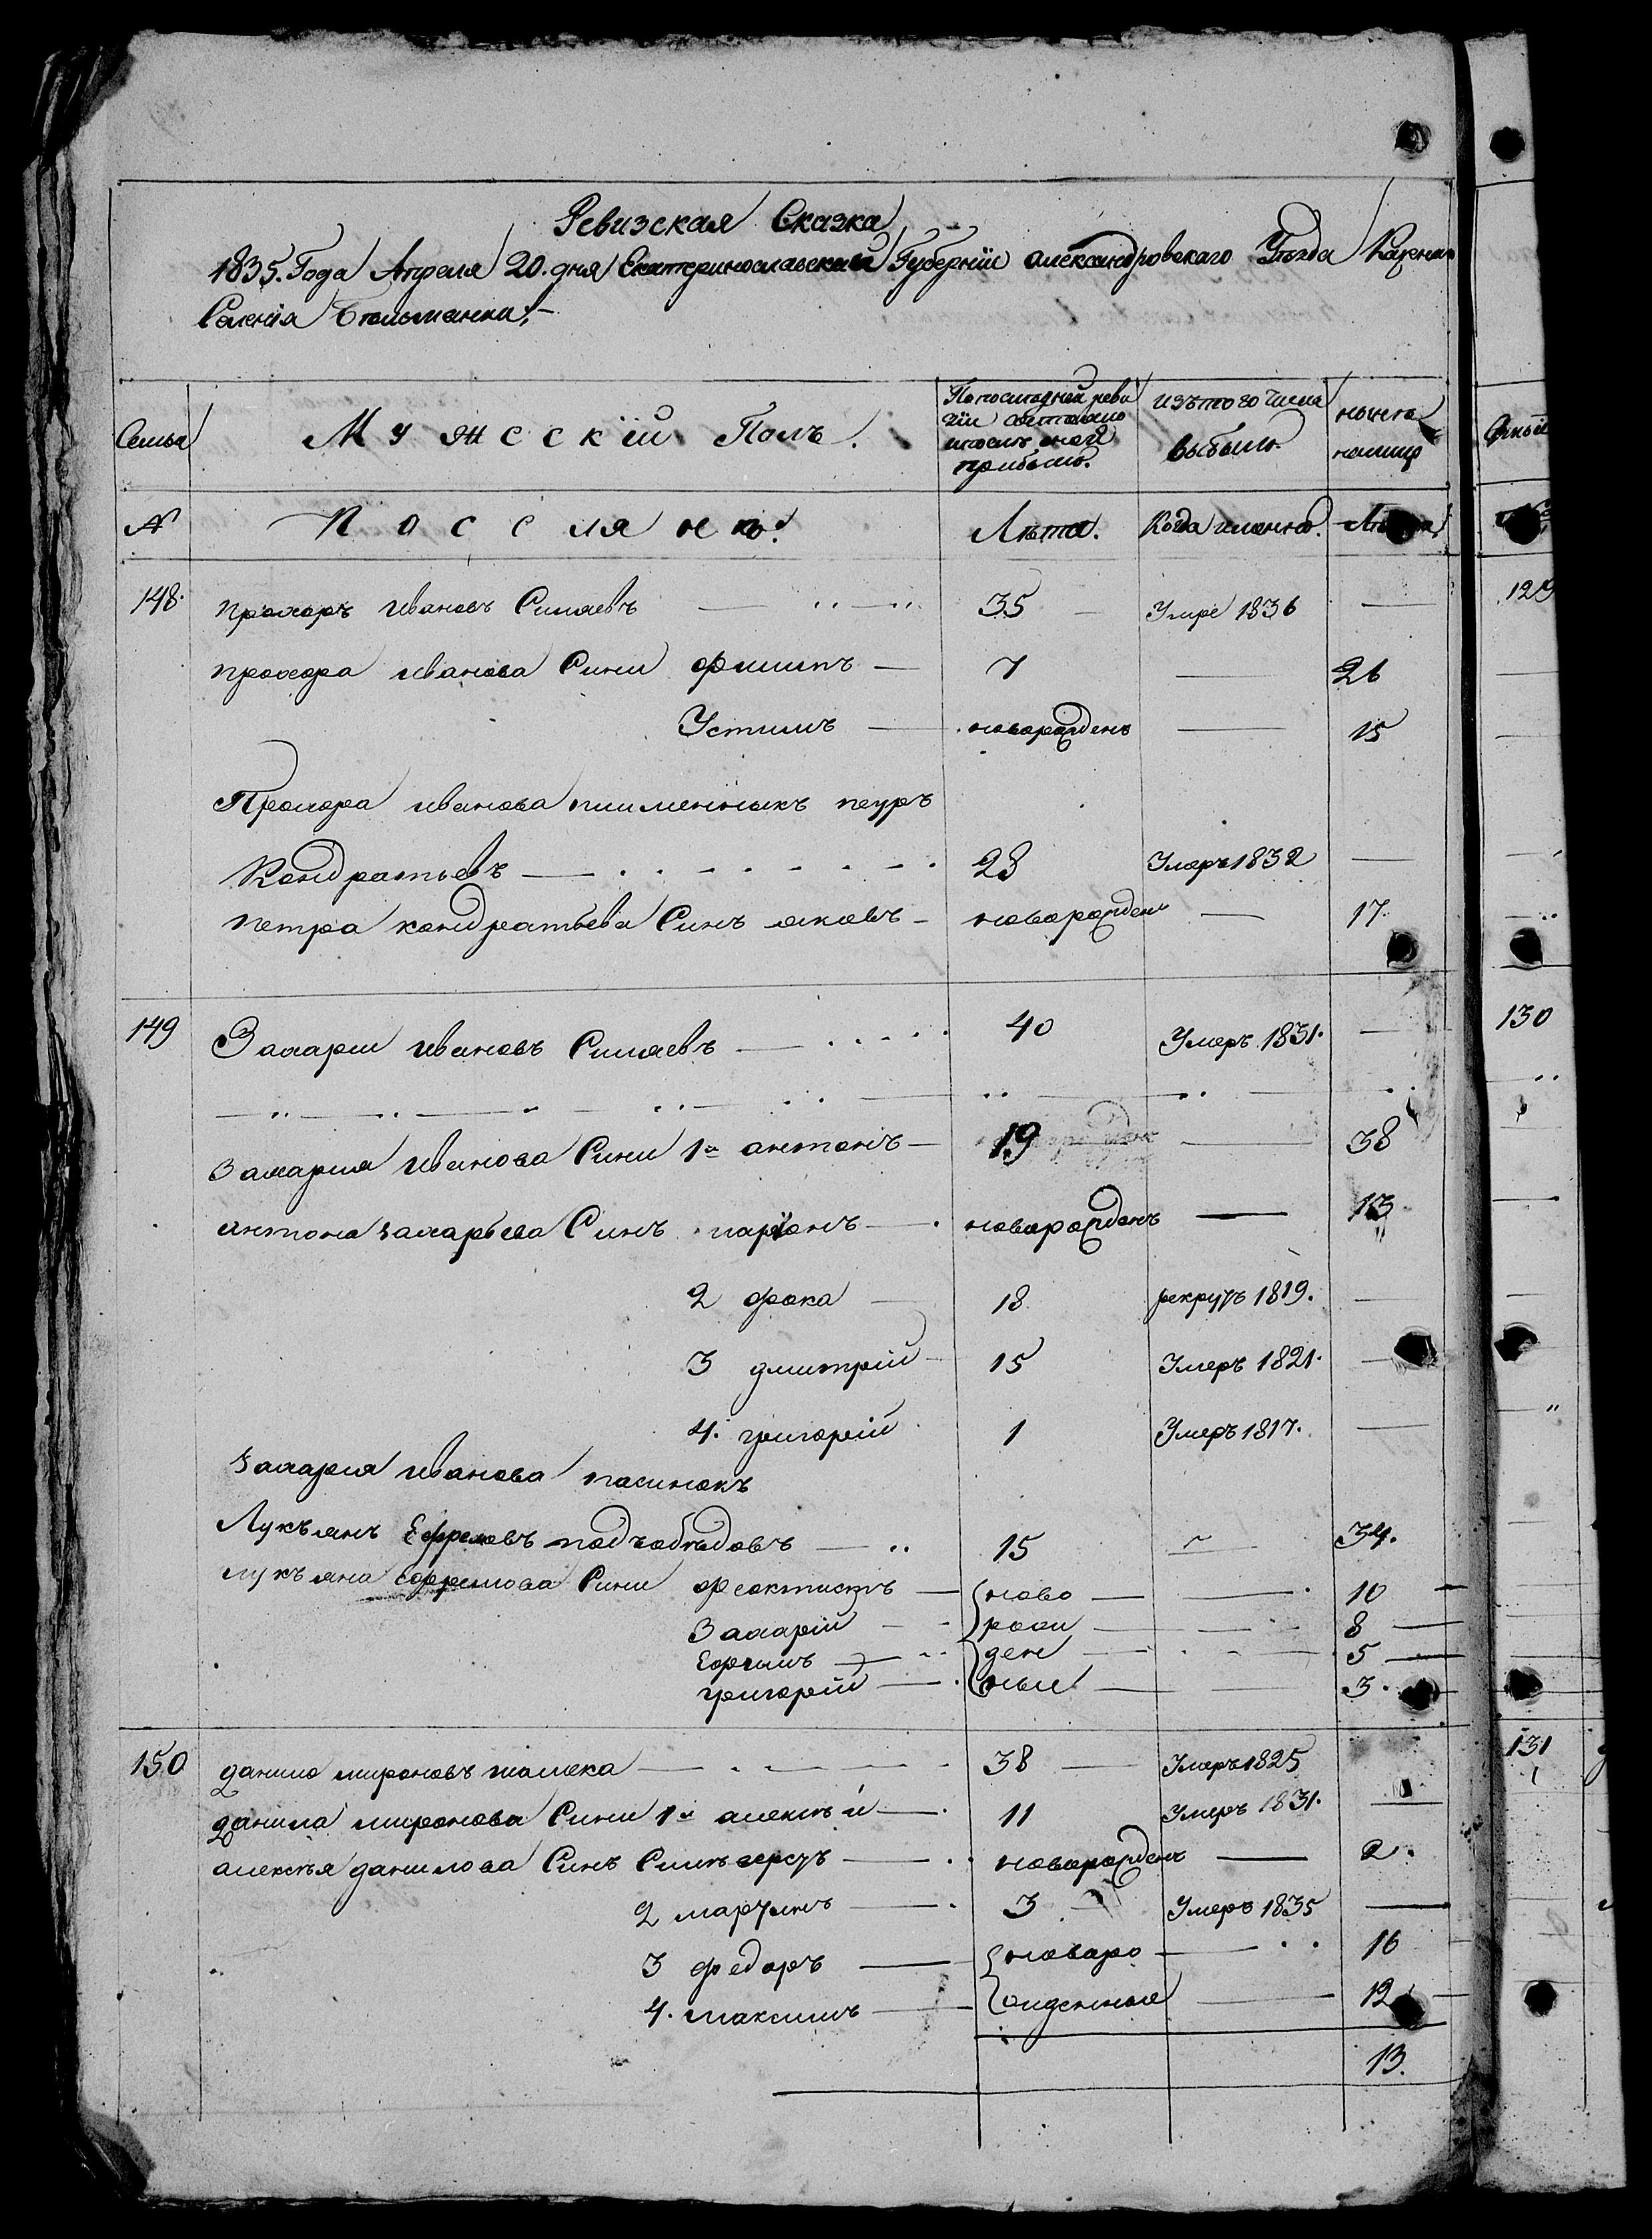 Ревизская Сказка
1835. Года Апреля 20. дня Екатеринославской Губернїи Александровскаго Уезда Казенна
Селенїя Бельманки.
Семьи
Мужесскїй Полъ.
По последней реви
зїи состояло
и после оной
прибыло.
Изъ того Числа
выбыло.
ныне
налицо
№
Поселяне.
Лета.
Когда именно.
Лета
148. прохоръ Ивановъ Силаевъ 35 Умре 1836 —
прохора Иванова Сини филипъ — 7 — 26
Устимъ — новорожденъ — 15
Прохора Иванова племенныкъ петръ
Кондратьевъ — 28 Умеръ 1832 —
петра кондратьева Синъ яковъ — новорожден — 17.
149 Захарїи Ивановъ Силаевъ — 40 Умеръ 1831. —
Захария Иванова Сини 1й антонъ — 19 — 38
антона захарьева Синъ ларїонъ — новорожденъ — 13
2 фока — 18 рекрутъ 1819. —
3 дмитрїй — 15 Умеръ 1821. —
4. григорїй 1 Умеръ 1817. —
Захария Иванова пасинокъ
Лукъянъ Ефремовъ подъобедовъ — 15 — 34.
лукъяна Ефремова Сини феоктистъ — ново — 10
Захарїй — рож — 8
Ефимъ — ден — 5
григорїй — ныи — 3.
150 данило мироновъ — 38 — Умеръ 1825
данила миронова Сини 1й алексей — 11 Умеръ 1831. —
алексея данилова Синъ — новорожденъ — 2.
2 мартинъ — 3 Умеръ 1835 —
3 федоръ — новоро — 16
4. максимъ — жденные — 12
13.
129
130
131